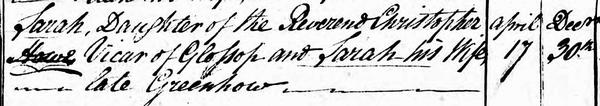 Sarah, Daughter of the Reverend Christopher April Decr
Howe, Vicar of Glossop and Sarah his Wife, 17 30th
late Greenhow